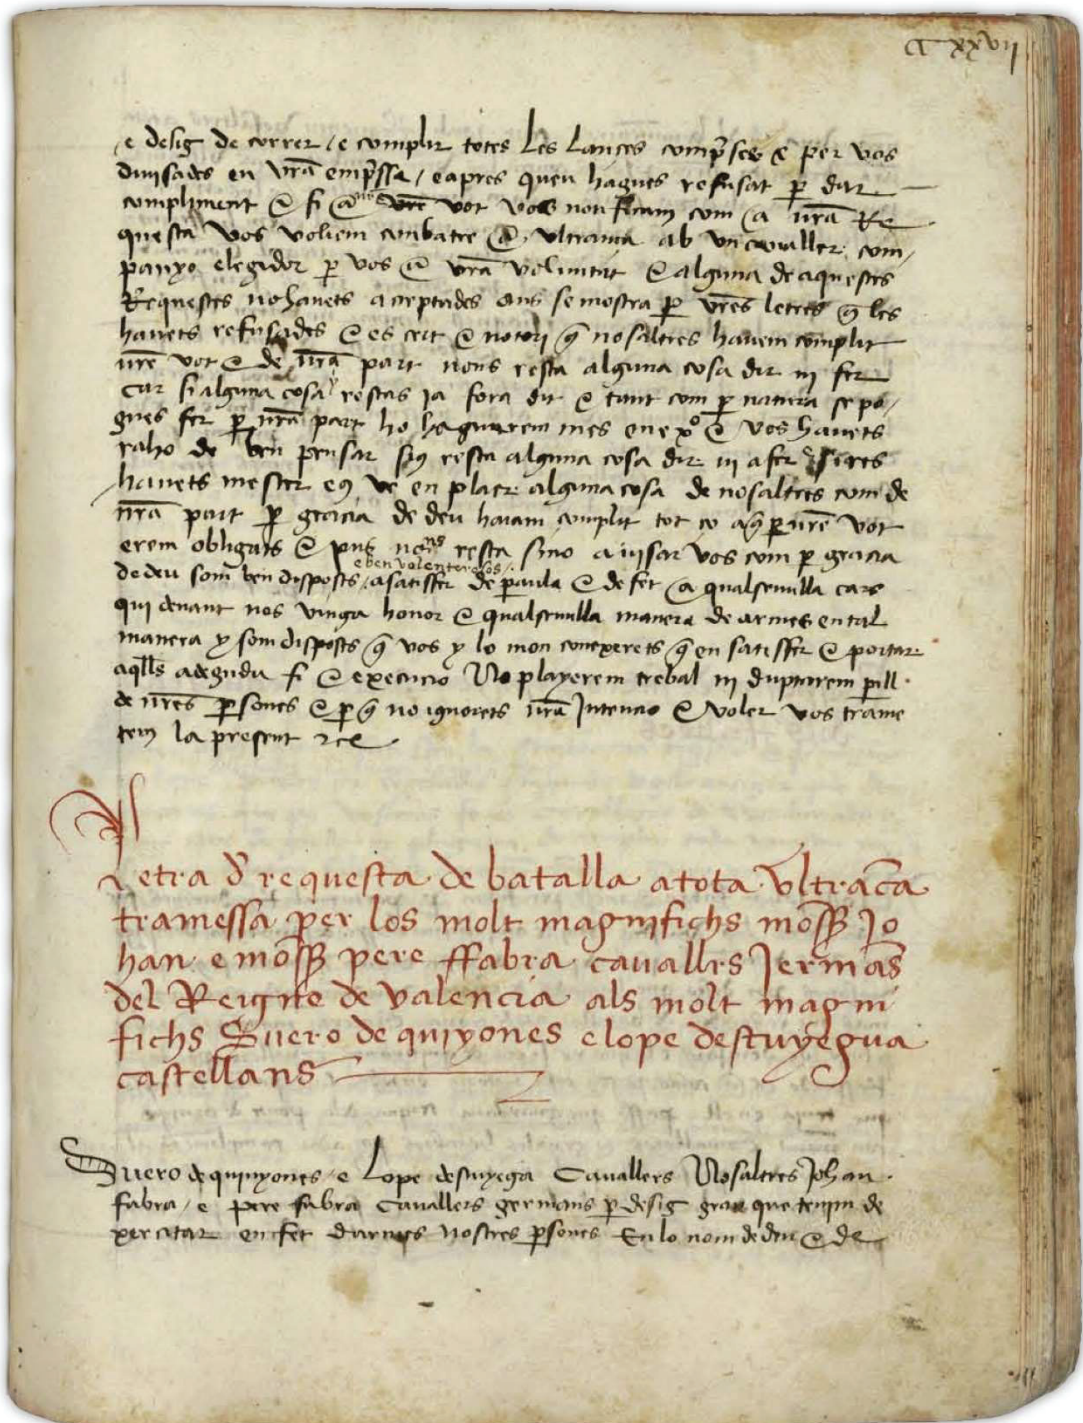 C xxvij
e desig de correr / e complir totes les lances compreses e per vos
divisades en vra empressa / e apres queu hagues refusat per dar
compliment e fi a vre vot vos non sicam com a nra Re
questa vos voliem combatre a ultrança ab un cavaller com /
panyo elegidor per vos a vra voluntat e alguna de aquestes
Requestes no havets acceptades ans se mostra per vres letres q les
havets refusades e es cert e notori q nosaltres havem complit
nre vot e de nra part nons resta alguna cosa dir ni fer
car si alguna cosa y restas ja fora dit e tant com per natura se po /
gues fer per nra part ho haguerem mes en e vos havets
raho de ben pensar sius resta alguna cosa dir ni a fer e si res
havets mester eus ve en plaer alguna cosa de nosaltres com de
nra part per gracia de deu haiam complit tot ço a q per nre vot
erem obligats e pus nons resta sino avisar vos com per gracia
e ben volenterosos /
de deu som ben disposts / a satisfer de paraula e de fet a qualsevulla cars
qui denant nos vinga honor e qualsevulla manera de armes en tal
manera y som disposts q vos y lo mon conexerets q en satisffer e portar
aqlls a deguda fi e execucio No planyerem trebal ni duptarem perill
de nres persones e per q no ignorets nra Intencio e voler vos trame
tem la present
Letra d requesta de batalla a tota Ultraça
tramessa per los molt magnifichs moss Jo
han e moss pere ffabra cavallrs Jermas
del Reigne de valencia als molt magni
fichs Suero de quiyones e lope destuyegua
castellans
Suero de quinyones / e Lope destuyega Cavallers Nosaltres Johan
fabra / e pere fabra Cavallers germans per desig gran que tenim de
xercitar en fet darmes nostres persones En lo nom de deu e de